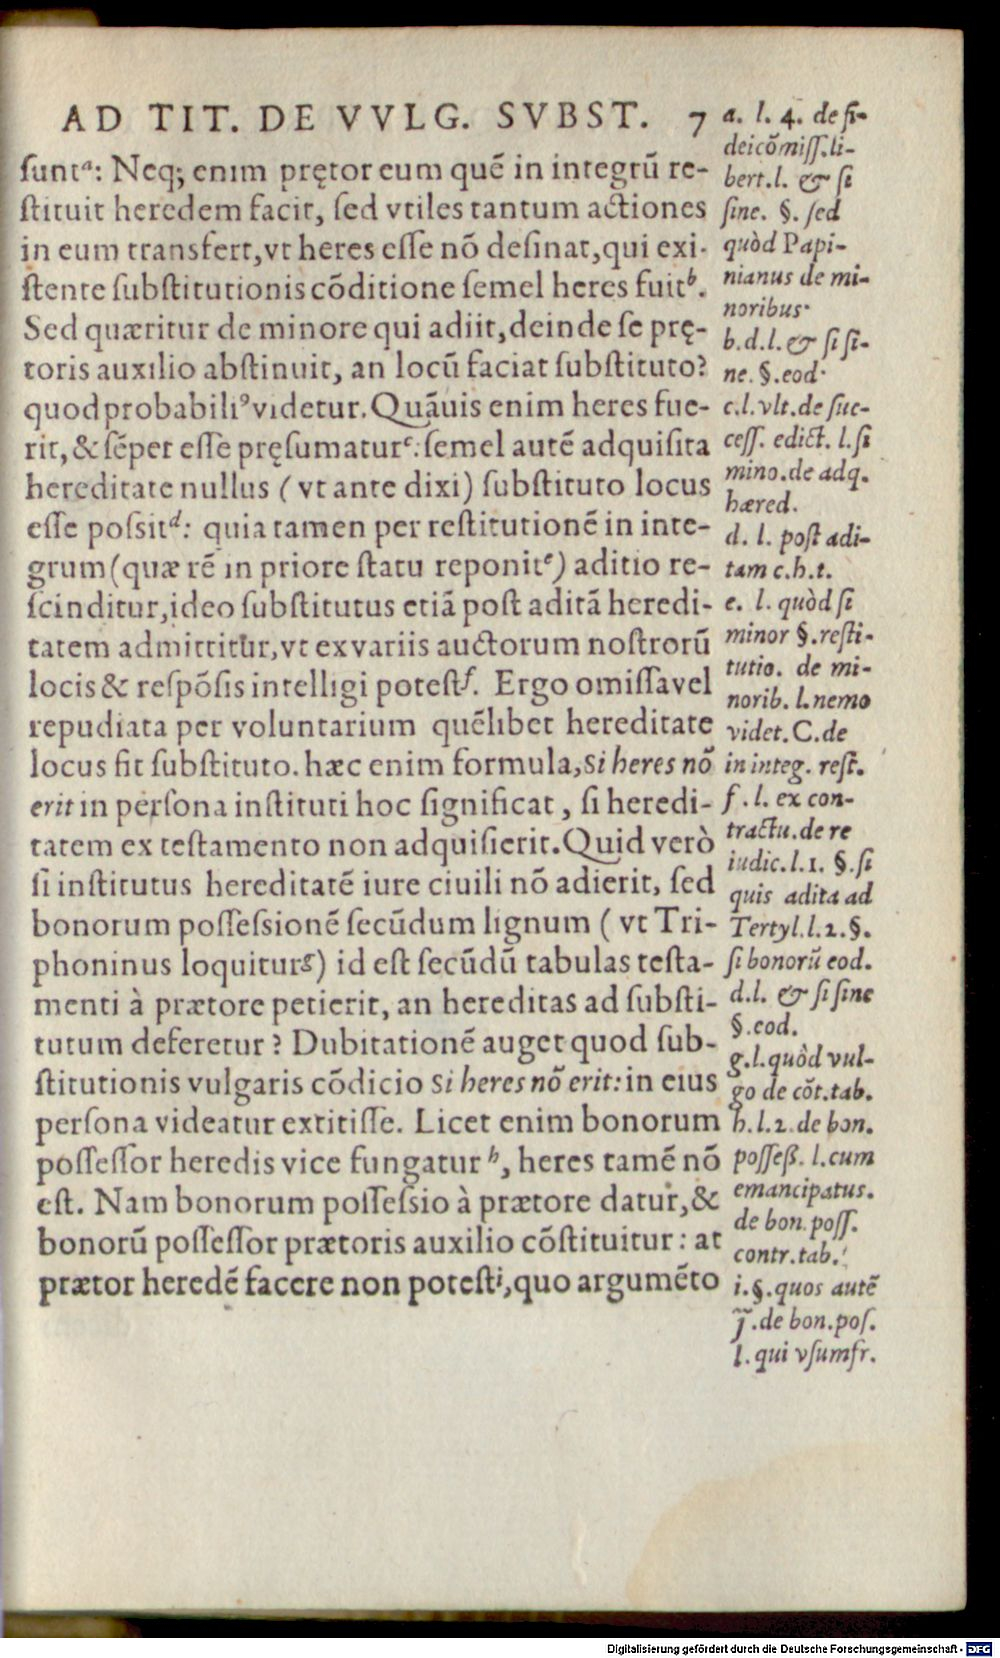 AD TIT. DE VVLG. SVBST. 7
suntᵃ: Neq; enim prętor eum quē in integrū re-
stituit heredem facit, sed vtiles tantum actiones
in eum transfert, vt heres esse nō desinat, qui exi-
stente substitutionis cōditione semel heres fuitᵇ.
Sed quæritur de minore qui adiit, deinde se prę-
toris auxilio abstinuit, an locū faciat substituto?
quod probabiliꝰ videtur. Quāuis enim heres fue-
rit, & sēper esse pręsumaturᶜ: semel autē adquisita
hereditate nullus ( vt ante dixi) substituto locus
esse possitᵈ: quia tamen per restitutionē in inte-
grum (quæ rē in priore statu reponitᵉ) aditio re-
scinditur, ideo substitutus etiā post aditā heredi-
tatem admittitur, vt ex variis auctorum nostrorū
locis & respōsis intelligi potestᶠ. Ergo omissa vel
repudiata per voluntarium quēlibet hereditate
locus fit substituto. hæc enim formula, Si heres nō
erit in persona instituti hoc significat, si heredi-
tatem ex testamento non adquisierit. Quid verò
si institutus hereditatē iure ciuili nō adierit, sed
bonorum possessionē secūdum lignum ( vt Tri-
phoninus loquiturᵍ) id est secūdū tabulas testa-
menti à prætore petierit, an hereditas ad substi-
tutum deferetur ? Dubitationē auget quod sub-
stitutionis vulgaris cōdicio Si heres nō erit: in eius
persona videatur extitisse. Licet enim bonorum
possessor heredis vice fungaturʰ, heres tamē nō
est. Nam bonorum possessio à prætore datur, &
bonorū possessor prætoris auxilio cōstituitur: at
prætor heredē facere non potestⁱ, quo argumēto
a. l. 4. de fi-
deicōmiss. li-
bert. l. & si
sine. §. sed
quòd Papi-
nianus de mi-
noribus.
b. d. l. & si si-
ne. §. eod.
c. l. vlt. de suc-
cess. edict. l. si
mino. de adq.
hæred.
d. l. post adi-
tam c. h. t.
e. l. quòd si
minor §. resti-
tutio. de mi-
norib. l. nemo
videt. C. de
in integ. rest.
f. l. ex con-
tractu. de re
iudic. l. 1. §. si
quis adita ad
Tertyl. l. 2. §.
si bonorū eod.
d. l. & si sine
§. eod.
g. l. quòd vul-
go de cōt. tab.
h. l. 2. de bon.
posseß. l. cum
emancipatus.
de bon. poss.
contr. tab.
i. §. quos autē
J̄. de bon. pos.
l. qui vsumfr.
Digitalisierung gefördert durch die Deutsche Forschungsgemeinschaft - DFG